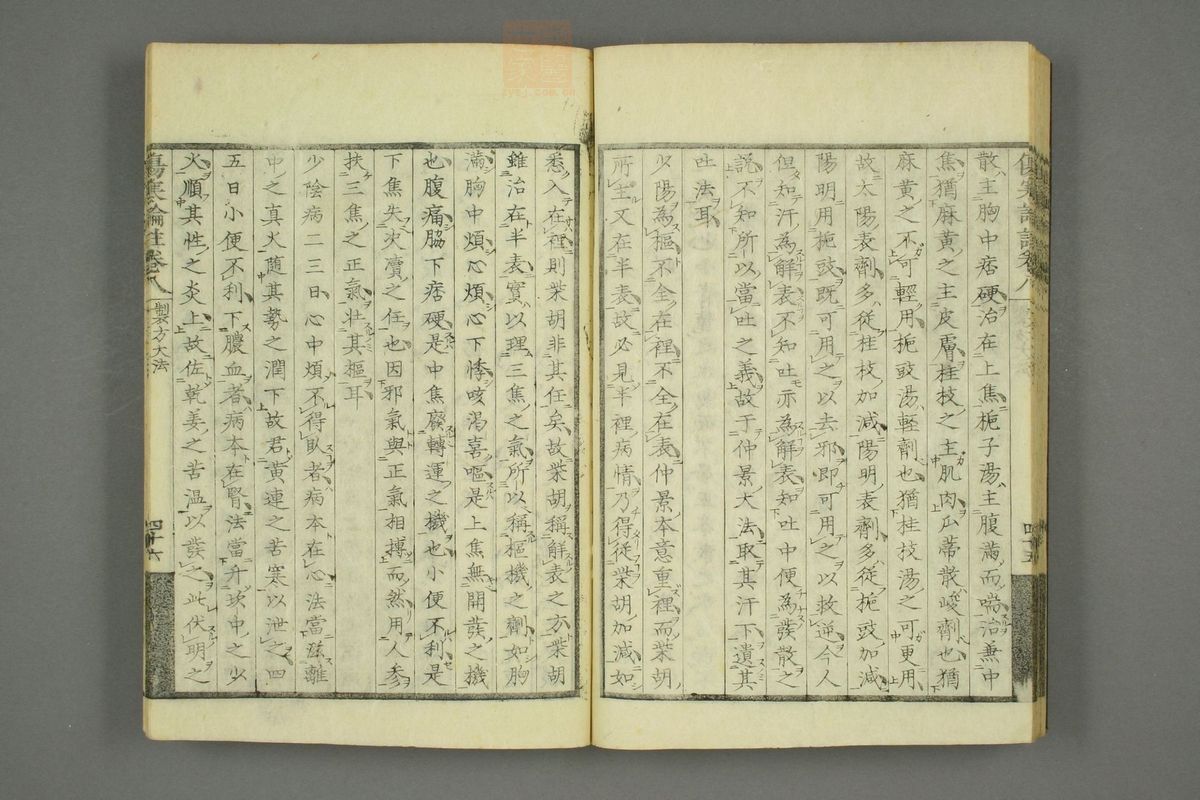 散主胸中痞硬治在上焦梔子湯主腹滿而喘治兼中
焦猶麻黃之主皮膚桂枝之主肌肉瓜蒂散峻劑也猶
麻黃之不可輕用梔豉湯輕劑也猶桂枝湯之可更用
故太陽表劑多從桂枝加減陽明表劑多從梔豉加減
陽明用梔豉既可用之以去邪即可用之以救逆今人
但知汗為解表不知吐亦為解表知吐中便為發散之
說不知所以當吐之義故于仲景大法取其汗下遺其
吐法耳
少陽為樞不全在裡不全在表仲景本意重裡而柴胡
所主又在半表故必見半裡病情乃得從柴胡加減如
悉入在裡則柴胡非其任矣故柴胡稱解表之方柴胡
雖治在半表實以理三焦之氣所以稱樞機之劑如胸
滿胸中煩心煩心下悸咳渴喜嘔是上焦無開發之機
也腹痛脇下痞硬是中焦廢轉運之機也小便不利是
下焦失決瀆之任也因邪氣與正氣相摶而然用人參
扶三焦之正氣壯其樞耳
少陰病二三日心中煩不得臥者病本在心法當滋離
中之真火隨其勢之潤下故君黃連之苦寒以泄之四
五日小便不利下膿血者病本在腎法當升坎中之少
火順其性之炎上故佐乾姜之苦温以發之此伏明之
傷寒論註卷八
製方大法
四十六
四十五